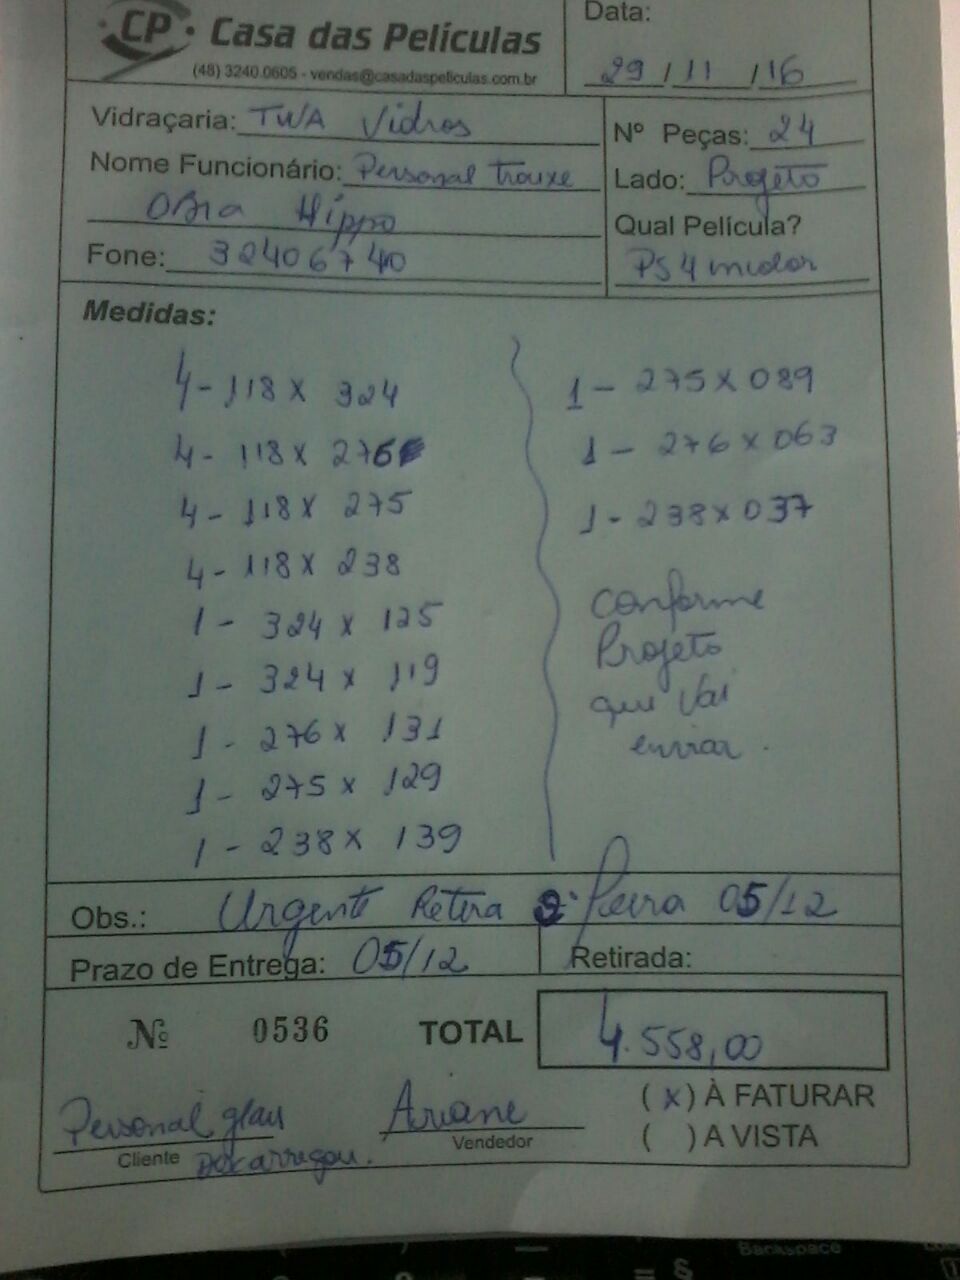 CP Casa das Películas
(48) 3240.0605 - vendas@casadaspeliculas.com.br
Data:
29/11/16
Vidraçaria: TWA Vidros
Nome Funcionário: Personal trouxe
OBRA Hippo
Fone: 32406740
Nº Peças: 24
Lado: Projeto
Qual Película?
PS4 incolor
Medidas:
4 - 118 x 324
4 - 118 x 276
4 - 118 x 275
4 - 118 x 238
1 - 324 x 125
1 - 324 x 119
1 - 276 x 131
1 - 275 x 129
1 - 238 x 139
1 - 275 x 089
1 - 276 x 063
1 - 238 x 037
conforme
Projeto
que Vai
enviar.
Obs.: Urgente Retira 2ª feira 05/12
Prazo de Entrega: 05/12
Retirada:
Nº 0536
TOTAL 4.558,00
(x) À FATURAR
( ) A VISTA
Personal glass
Cliente Descarregou.
Ariane
Vendedor
Backspace
§